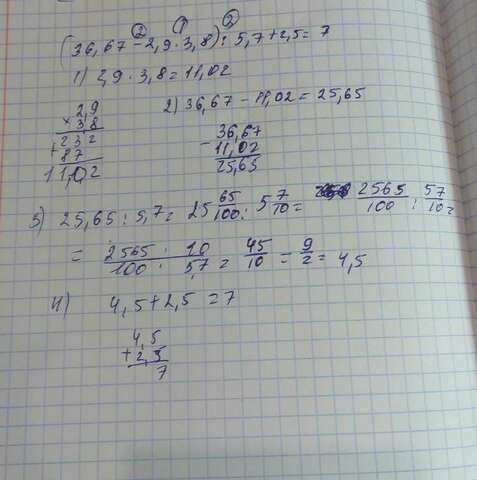 ② ① ③
(36,67 - 2,9 · 3,8) : 5,7 + 2,5 = 7
1) 2,9 · 3,8 = 11,02
2) 36,67 - 11,02 = 25,65
2,9
× 3,8
+ 232
87
11,02
- 36,67
11,02
25,65
3) 25,65 : 5,7 = 25 65/100 : 5 7/10 = 2565/100 : 57/10 =
= 2565 · 10 / 100 · 57 = 45/10 = 9/2 = 4,5
4) 4,5 + 2,5 = 7
4,5
+ 2,5
7